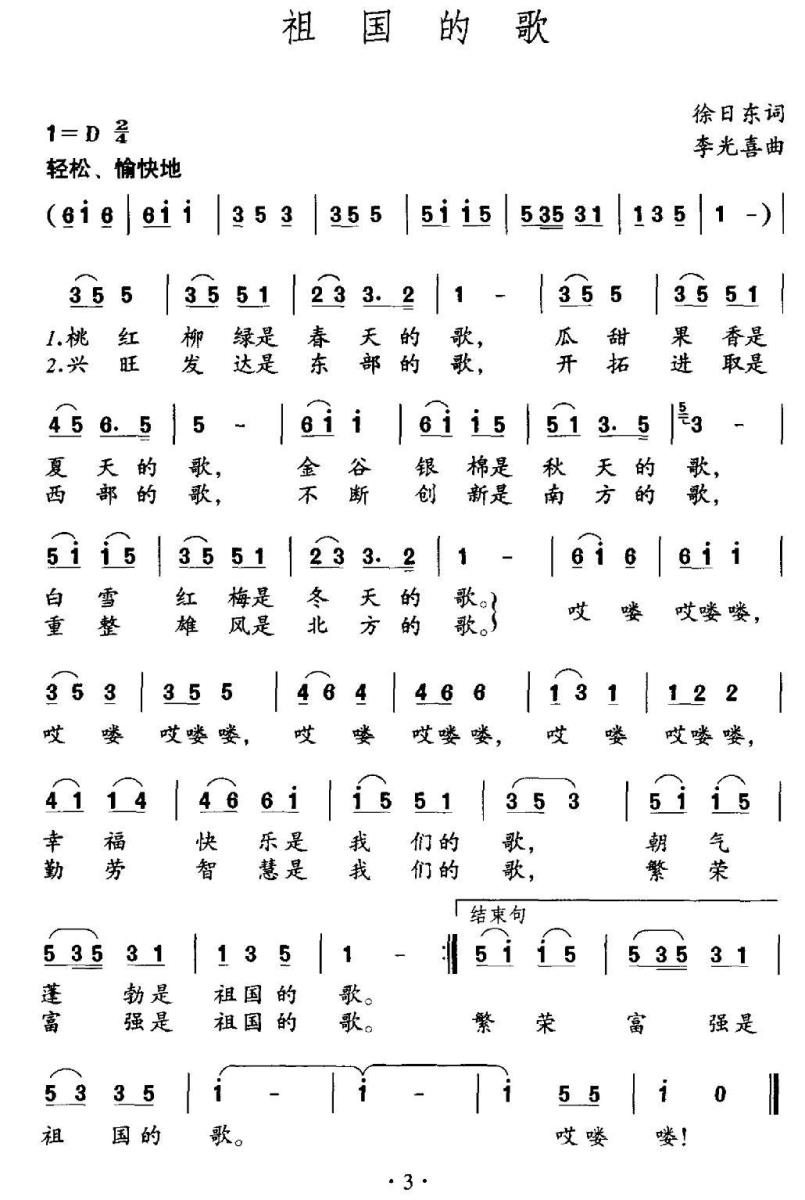 祖国的歌
徐日东词
1=D 2/4
李光喜曲
轻松、愉快地
(6i̇6 | 6i̇i̇ | 353 | 355 | 5i̇i̇5 | 53531 | 135 | 1 -) |
355 | 3551 | 233.2 | 1 - | 355 | 3551 |
1.桃红柳绿是春天的歌,瓜甜果香是
2.兴旺发达是东部的歌,开拓进取是
456.5 | 5 - | 6i̇i̇ | 6i̇i̇5 | 5i̇3.5 | 53 - |
夏天的歌,金谷银棉是秋天的歌,
西部的歌,不断创新是南方的歌,
5i̇i̇5 | 3551 | 233.2 | 1 - | 6i̇6 | 6i̇i̇ |
白雪红梅是冬天的歌。
重整雄风是北方的歌。} 哎喽哎喽喽,
353 | 355 | 464 | 466 | 131 | 122 |
哎喽哎喽喽,哎喽哎喽喽,哎喽哎喽喽,
4114 | 466i̇ | i̇551 | 353 | 5i̇i̇5 |
幸福快乐是我们的歌,朝气
勤劳智慧是我们的歌,繁荣
结束句
53531 | 135 | 1 - :‖ 5i̇i̇5 | 53531 |
蓬勃是祖国的歌。
富强是祖国的歌。繁荣富强是
5335 | i̇ - | i̇ - | i̇55 | i̇0 ‖
祖国的歌。哎喽喽!
·3·